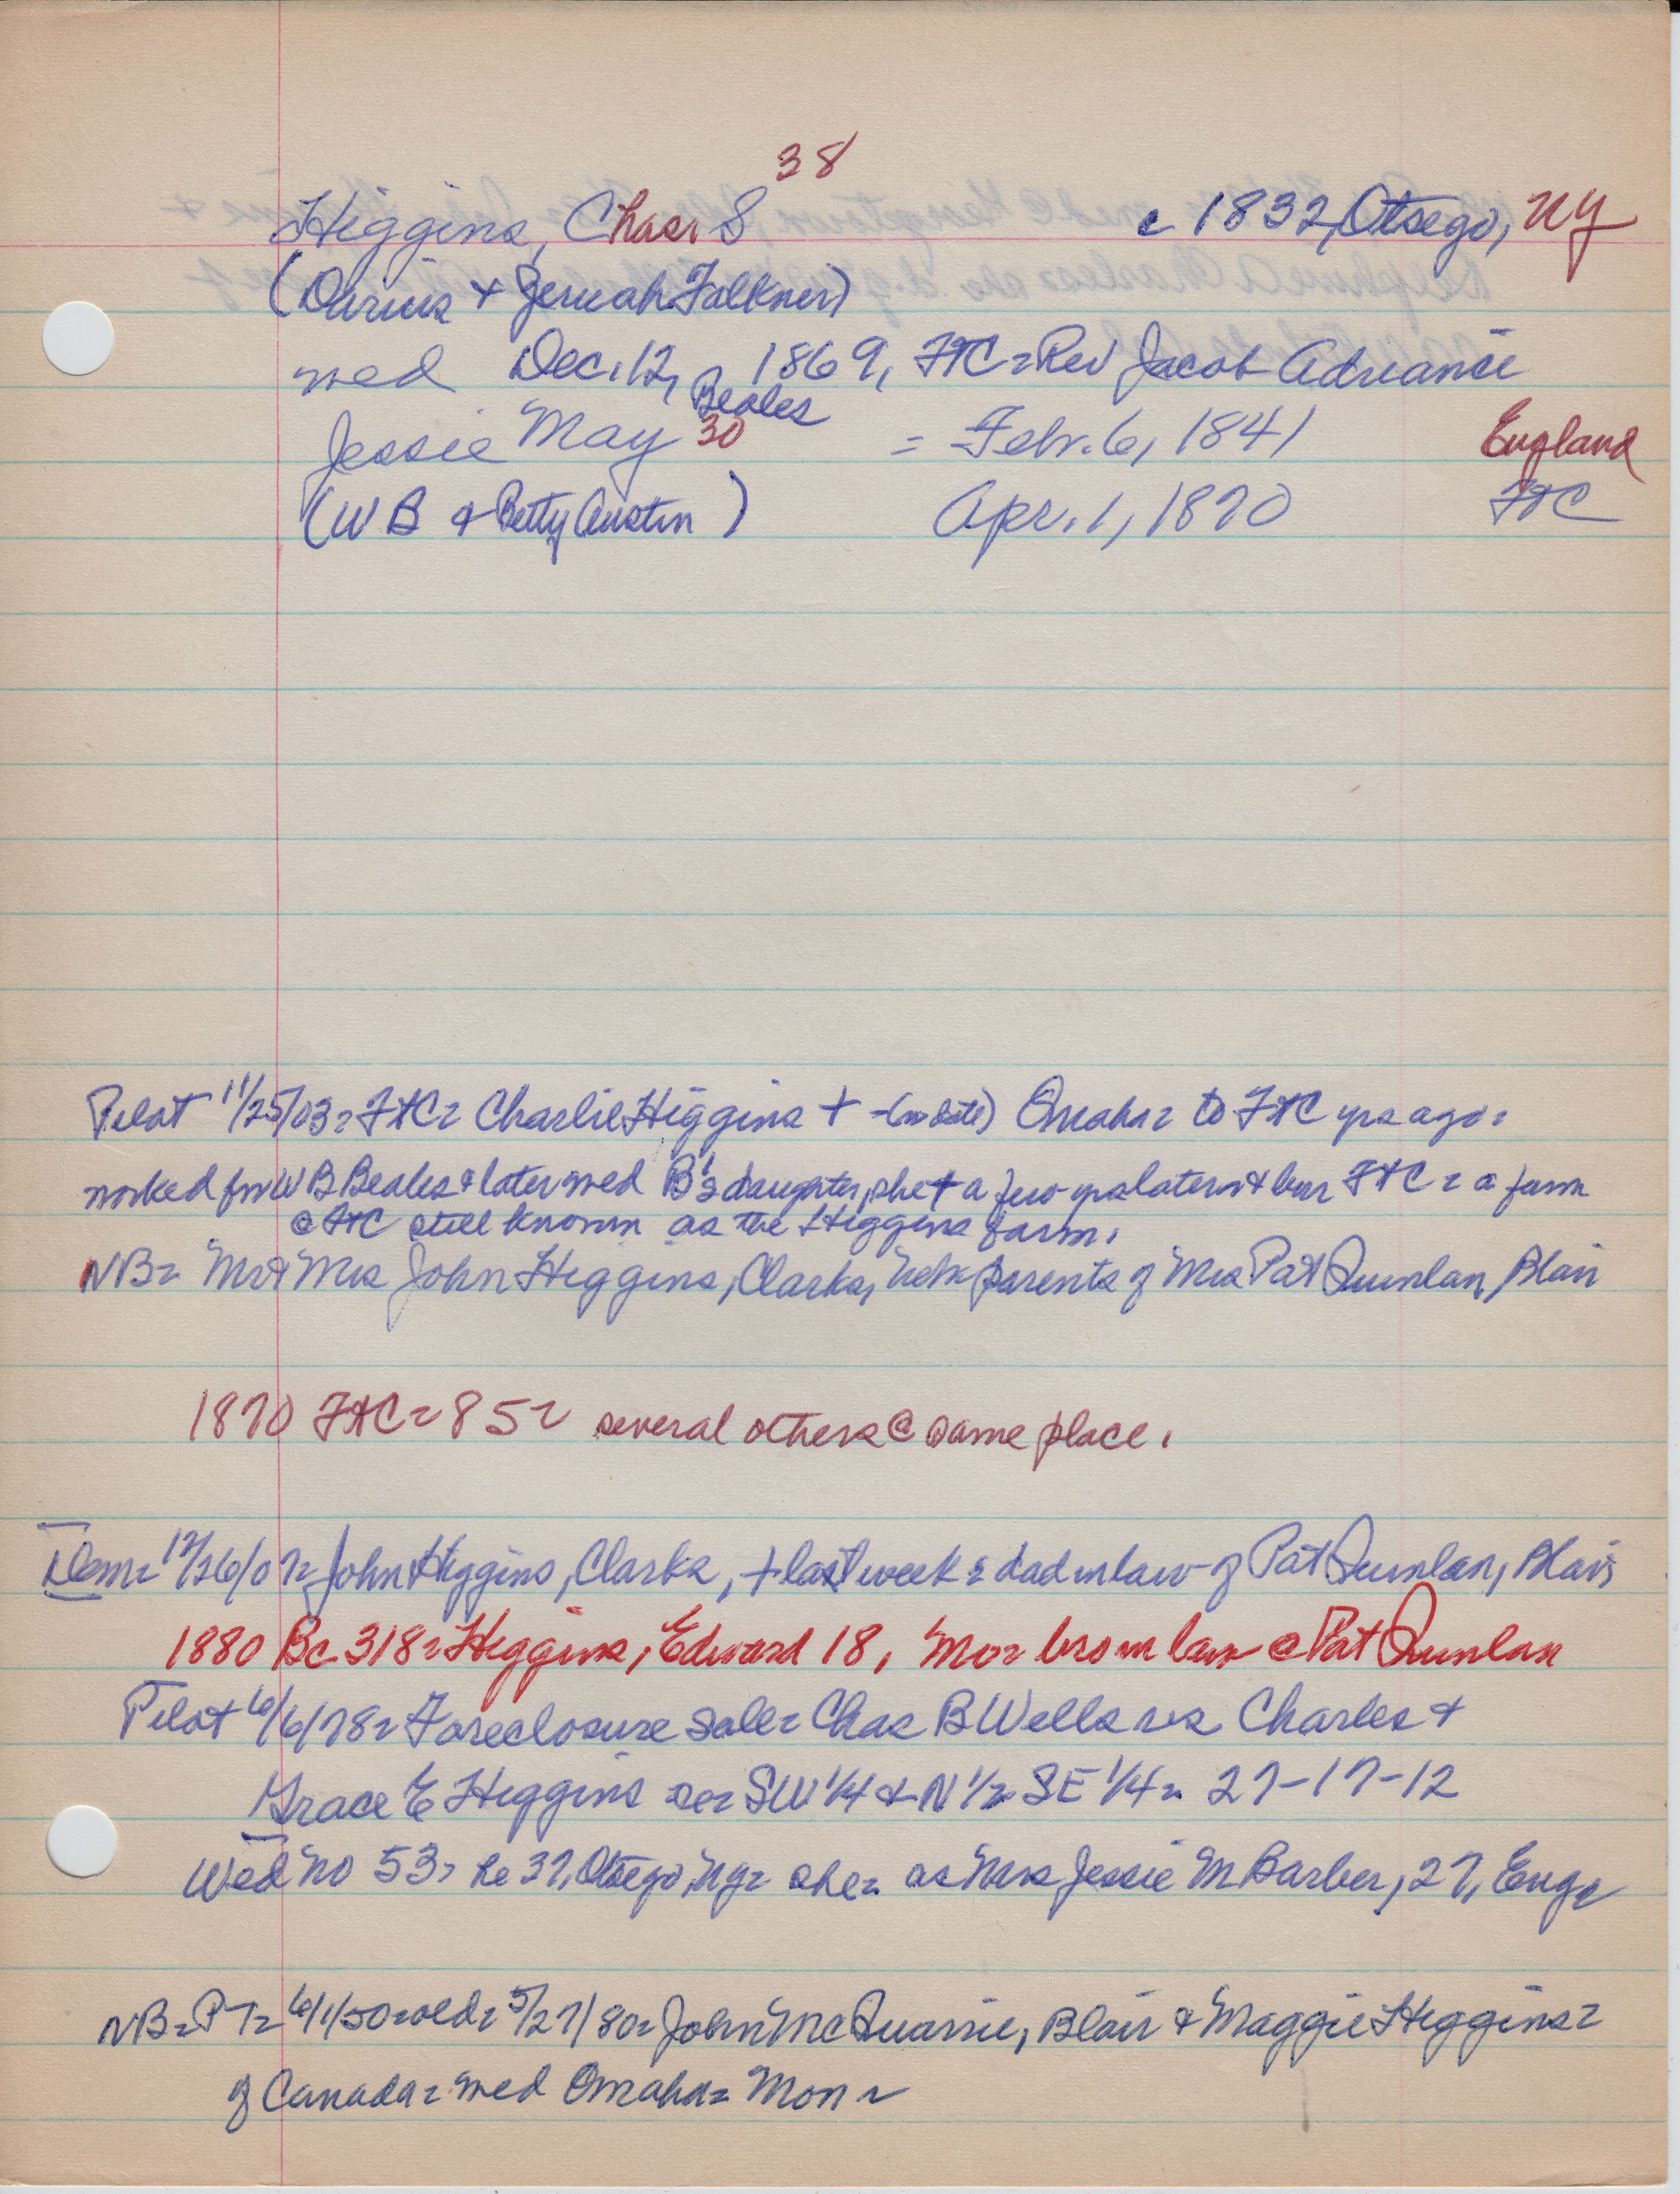 38
Higgins, Chas. S c 1832, Otsego, NY
(Darius + Jeruah Falkner)
wed Dec. 12, 1869, FtC = Rev Jacob Adriance
Beales
Jessie May 30 = Febr. 6, 1841 England
(WB & Betty Austin) Apr. 1, 1870 FtC
Pilot 11/25/03 = FtC = Charlie Higgins + -(no date) Omaha = to FtC yrs ago =
worked for WB Beales & later wed B's daughter, she + a few yrs later & bur FtC = a farm
@ FtC still known as the Higgins farm.
NB = Mr & Mrs John Higgins, Clarks, Neb = parents of Mrs Pat Quinlan, Blair
1870 FtC = 85 = several others @ same place.
Dem = 12/26/07 = John Higgins, Clarks, + last week = dad in law of Pat Quinlan, Blair
1880 Bc 318 = Higgins, Edward 18, Mo = bro in law @ Pat Quinlan
Pilot 6/6/78 = Foreclosure sale = Chas B Wells vs Charles &
Grace E Higgins re = SW 1/4 & N 1/2 SE 1/4 = 27-17-12
Wed No 53 = he 37, Otsego, Ny = she = as Mrs Jessie M Barber, 27, Eng =
NB = PT = 6/1/50 = wed = 5/27/80 = John McQuarrie, Blair & Maggie Higgins =
of Canada = wed Omaha = Mon =